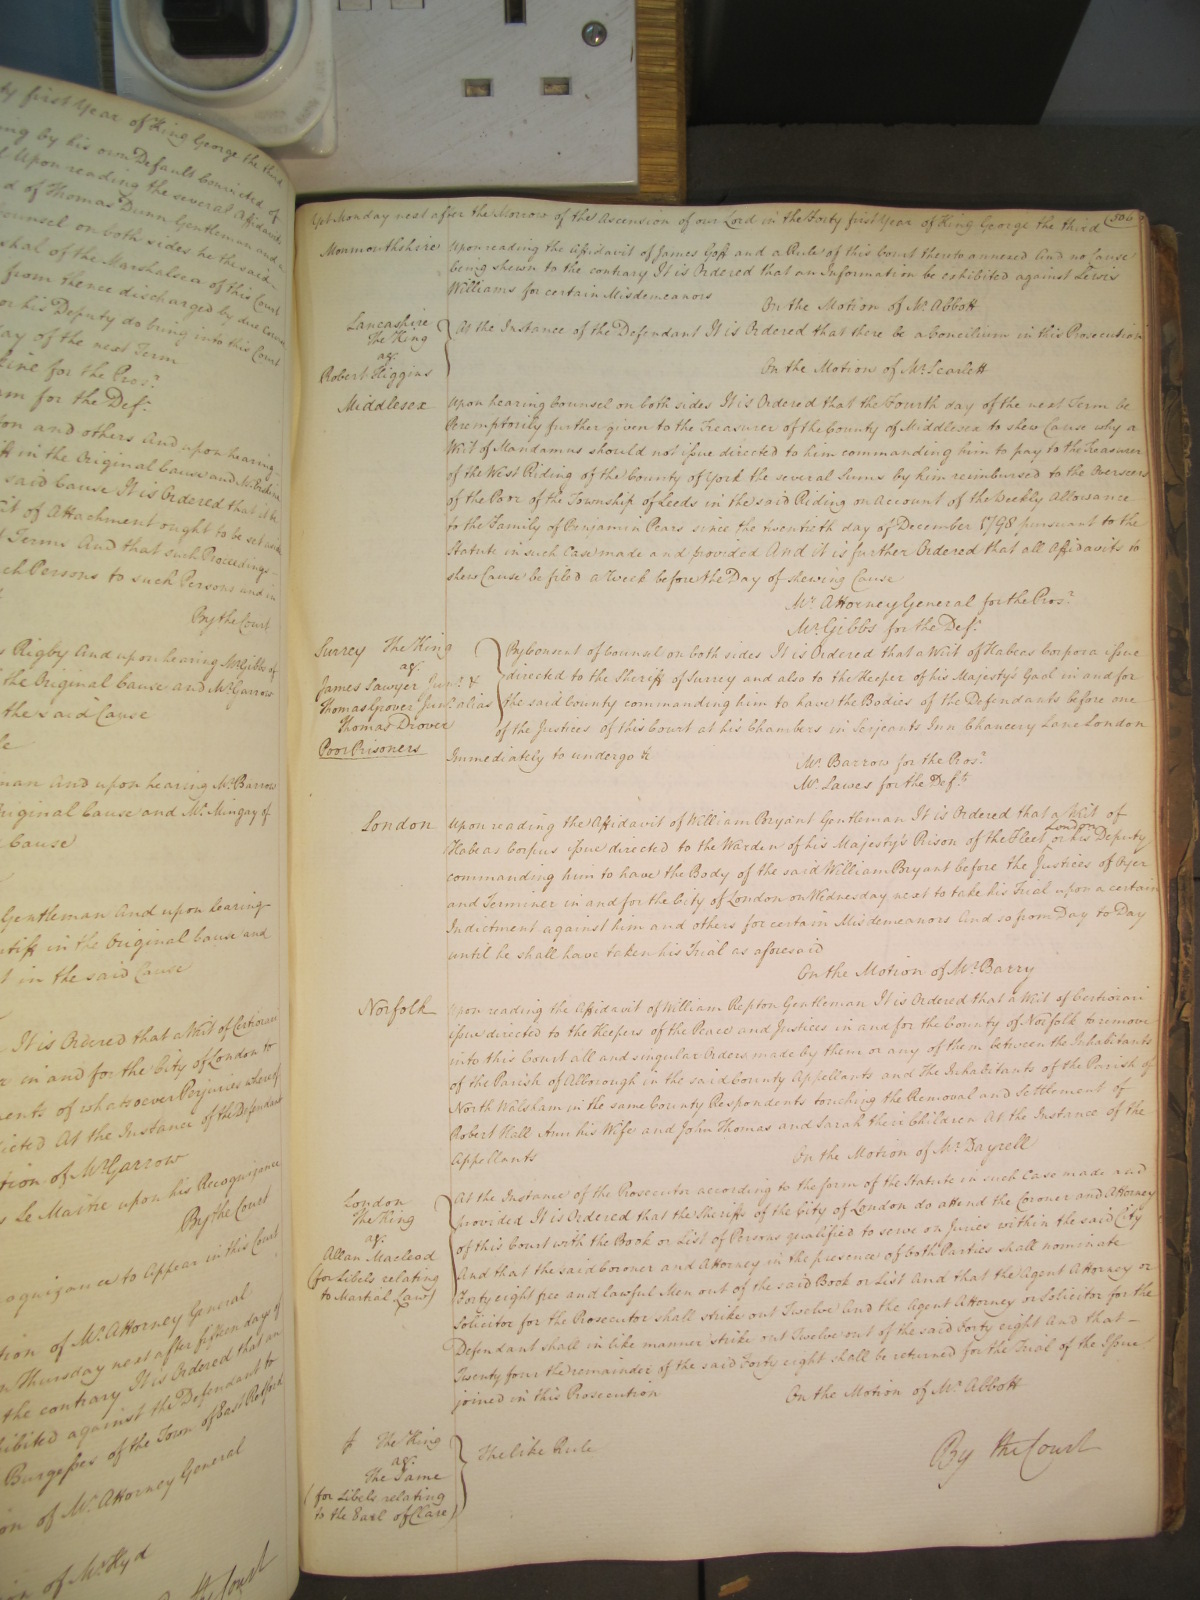 ty first Year of King George the third
ing by his own Default Convicted of
Upon reading the several Affidavits
d of Thomas Dunn Gentleman and
Counsel on both sides he the said
shal of the Marshalsea of this Court
from thence discharged by due course
or his Deputy do bring into this Court
ay of the next Term
ine for the Pros.r
am for the Def.t
on and others And upon hearing
ff in the Original Cause and Mr Erskine
said Cause It is Ordered that it be
it of Attachment ought to be set aside
Terms And that such Proceedings
ch Persons to such Persons and in
By the Court
Rigby And upon hearing Mr Gibbs of
the Original Cause and Mr Garrow
the said Cause
le
man And upon hearing Mr. Barrow
Original Cause and Mr. Mingay of
Cause
Gentleman And upon hearing
ntiff in the Original Cause and
in the said Cause
It is Ordered that a Writ of Certiorari
in and for the City of London to
ments of whatsoever Perjuries whereof
icted At the Instance of the Defendant
tion of Mr Garrow
Le Maitre upon his Recognizance
By the Court
ognizance to appear in this Court
tion of Mr. Attorney General
n Thursday next after fifteen days of
the contrary It is Ordered that an
hibited against the Defendant to
Burgesses of the Town of East Retford
on of Mr. Attorney General
of Mr Kyd
By the Court
Yet Monday next after the Morrow of the Ascension of our Lord in the Forty first Year of King George the third 506
Monmouthshire Upon reading the Affidavit of James Goff and a Rule of this Court thereto annexed And no Cause
being shewn to the contrary It is Ordered that an Information be exhibited against Lewis
Williams for certain Misdemeanors
On the Motion of Mr. Abbott
Lancashire
The King
ag.t
Robert Higgins
At the Instance of the Defendant It is Ordered that there be a Concilium in this Prosecution
On the Motion of Mr. Scarlett
Middlesex Upon hearing Counsel on both sides It is Ordered that the Fourth day of the next Term be
Peremptorily further given to the Treasurer of the County of Middlesex to shew Cause why a
Writ of Mandamus should not issue directed to him commanding him to pay to the Treasurer
of the West Riding of the County of York the several Sums by him reimbursed to the Overseers
of the Poor of the Township of Leeds in the said Riding on Account of the Weekly Allowance
to the Family of Benjamin Pears since the twentieth day of December 1798 pursuant to the
Statute in such Case made and provided And it is further Ordered that all Affidavits to
shew Cause be filed a Week before the Day of shewing Cause
Mr. Attorney General for the Pros.r
Mr. Gibbs for the Def.t
Surrey The King
ag.t
James Sawyer Jun.r &
Thomas Grover Jun.r alias
Thomas Drover
Poor Prisoners
By Consent of Counsel on both sides It is Ordered that a Writ of Habeas Corpora issue
directed to the Sheriff of Surrey and also to the Keeper of his Majesty's Gaol in and for
the said County commanding him to have the Bodies of the Defendants before one
of the Justices of this Court at his Chambers in Serjeants Inn Chancery Lane London
Immediately to undergo &c
Mr. Barrow for the Pros.r
Mr. Lawes for the Def.ts
London Upon reading the Affidavit of William Bryant Gentleman It is Ordered that a Writ of
Habeas Corpus issue directed to the Warden of his Majesty's Prison of the Fleet London or his Deputy
commanding him to have the Body of the said William Bryant before the Justices of Oyer
and Terminer in and for the City of London on Wednesday next to take his Trial upon a certain
Indictment against him and others for certain Misdemeanors And so from Day to Day
until he shall have taken his Trial as aforesaid
On the Motion of Mr. Barry
Norfolk Upon reading the Affidavit of William Repton Gentleman It is Ordered that a Writ of Certiorari
issue directed to the Keepers of the Peace and Justices in and for the County of Norfolk to remove
into this Court all and singular Orders made by them or any of them between the Inhabitants
of the Parish of Alborough in the said County Appellants and The Inhabitants of the Parish of
North Walsham in the same County Respondents touching the Removal and Settlement of
Robert Hall Ann his Wife and John Thomas and Sarah their Children At the Instance of the
Appellants
On the Motion of Mr. Dayrell
London
The King
ag.t
Allan Macleod
(for Libels relating
to Martial Law)
At the Instance of the Prosecutor according to the form of the Statute in such Case made and
provided It is Ordered that the Sheriffs of the City of London do attend the Coroner and Attorney
of this Court with the Book or List of Persons qualified to serve on Juries within the said City
And that the said Coroner and Attorney in the presence of both Parties shall nominate
Forty eight free and lawful Men out of the said Book or List And that the Agent Attorney or
Solicitor for the Prosecutor shall strike out Twelve And the Agent Attorney or Solicitor for the
Defendant shall in like manner strike out Twelve out of the said Forty eight And that
Twenty four the remainder of the said Forty eight shall be returned for the Trial of the Issue
joined in this Prosecution
On the Motion of Mr. Abbott
The King
ag.t
The Same
(for Libels relating
to the Earl of Clare)
The like Rule
By the Court